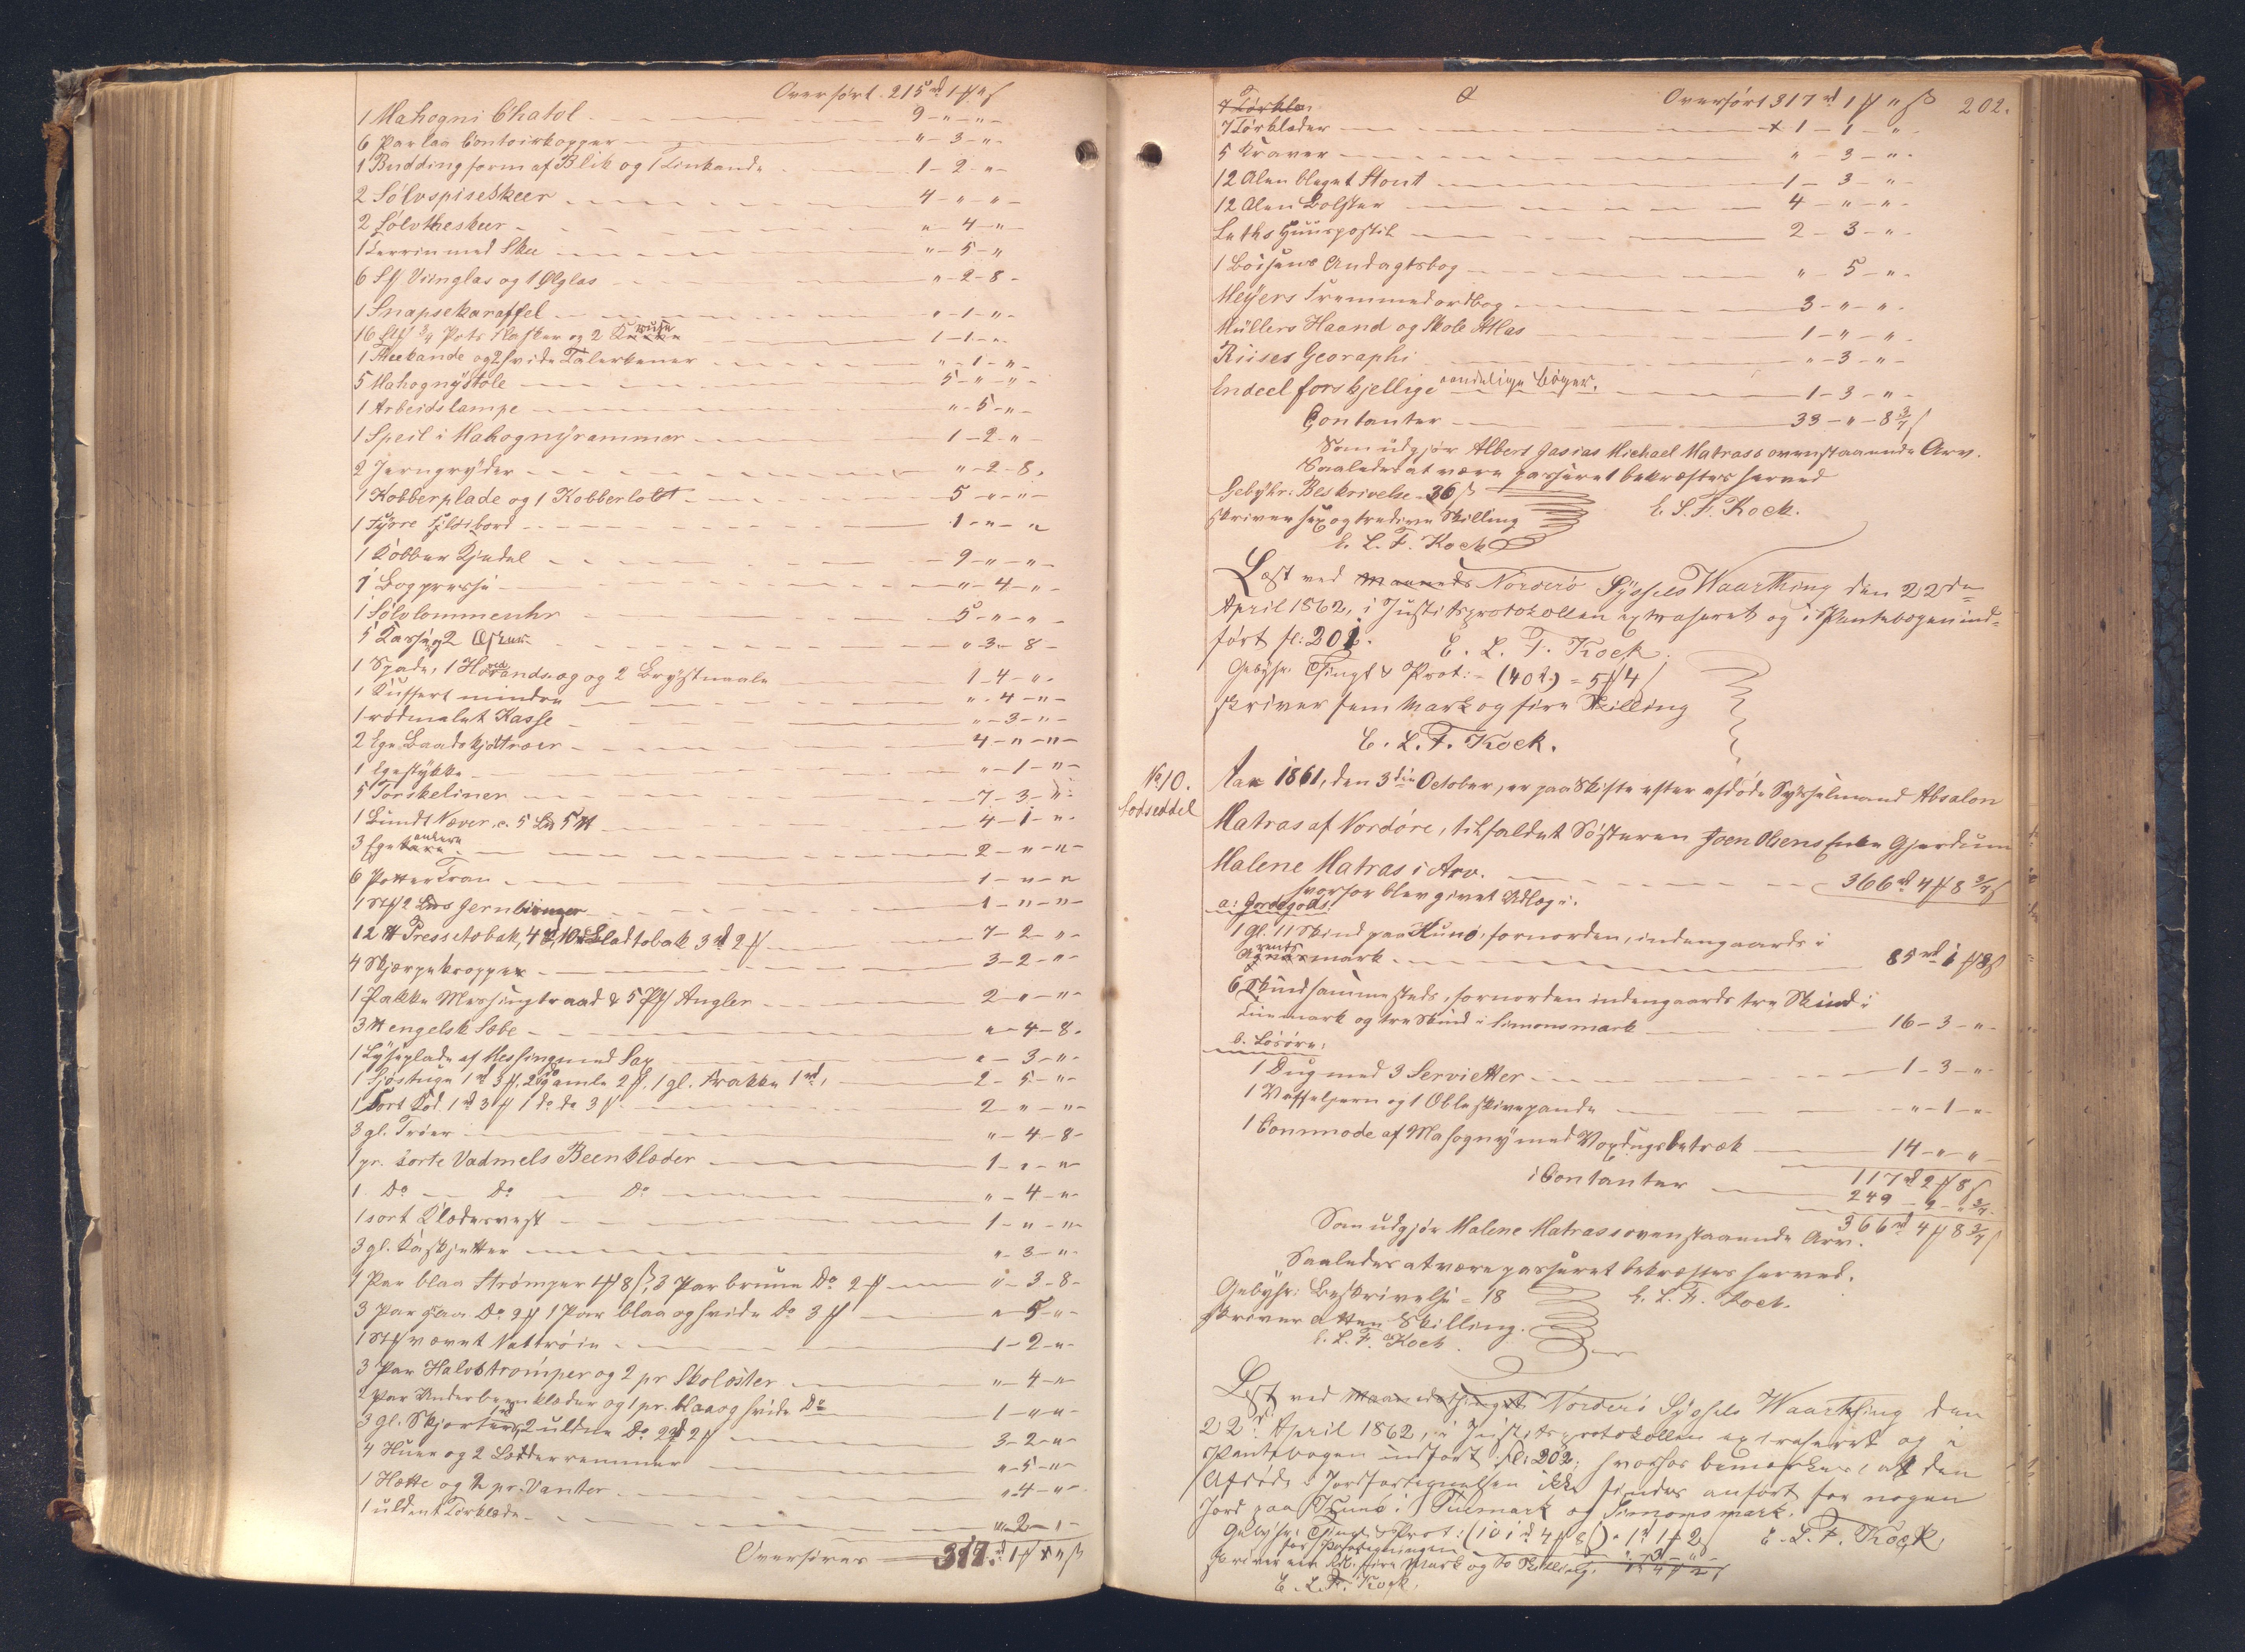 Overført 215 rd 1 ℳ " ß
1 Mahogni Chatol 9 - " - "
6 Par laa Contoirkopper " - 3 - "
1 Buddingform af Blik og 1 Tinkande 1 - 2 - "
2 Sølvspiseskeer 4 - " - "
2 Sølvtheskeer " - 4 - "
1 Terrin med Skee " - 5 - "
6 St Viinglas og 1 Ølglas " - 2 - 8
1 Snapsekaraffel " - 1 - "
16 St 3/4 Pots Flasker og 2 Kruse 1 - 1 - "
1 Theekande og 2 hvide Talerkener " - 1 - "
5 Mahognystole 5 - " - "
1 Arbeidslampe " - 5 - "
1 Speil i Mahognyrammer 1 - 2 - "
2 Jerngryder " - 2 - 8
1 Kobberplade og 1 Kobberlodt 5 - " - "
1 Fyrre Fjeldbord 1 - " - "
1 Kobber Kjedel 9 - " - "
1 Bogpresse " - 4 - "
1 Sølvlommeuhr 5 - " - "
5 Kasser 2 Æsker " - 3 - 8
1 Spade, 1 Haandsag og 2 Brystnaale 1 - 4 - "
1 Kuffert mindre " - 4 - "
1 rødmalet Kasse " - 3 - "
2 Ege Baadskjøttræer 4 - " - "
1 Egestykke " - 1 - "
5 Torskeliner 7 - 3 - "
1 Bundt Næver, c. 5 Ld 5 ℔ 4 - 1 - "
3 Ege ankere 2 - " - "
6 Potter Tran 1 - " - "
1 St 2 Lds Jernbismer 1 - " - "
12 ℔ Pressetobak, 4 rd, 10 ℔ Bladtobak 3 rd 2 ℳ 7 - 2 - "
4 Skjærpekropper 3 - 2 - "
1 Pakke Messingtraad & 5 Pk Angler 2 - " - "
3 ℔ engelsk Sæbe " - 4 - 8
1 Lyseplade af Messing med Sax " - 3 - "
1 Sjøstuge 1 rd 3 ℳ, 2 do gamle 2 ℳ, 1 gl. Frakke 1 rd, 2 - 5 - "
1 Sort Kod. 1 rd 3 ℳ 1 do do 3 ℳ 2 - " - "
3 gl. Trøier " - 4 - 8
1 pr. sorte Vadmels Beenklæder 1 - " - "
1 Do Do Do " - 4 - "
1 sort Klædesvest 1 - " - "
3 gl. Kaskjetter " - 3 - "
1 Par blaa Strømper 1 ℳ 8 ß, 3 Par brune Do 2 ℳ " - 3 - 8
3 Par graa Do 2 ℳ 1 Par blaa og hvide Do 3 ℳ " - 5 - "
1 St vævet Nattrøie 1 - 2 - "
3 Par Halvstrømper og 2 pr Skolæster " - 4 - "
2 Par Underbeenklæder og 1 pr. blaa og hvide Do 1 - " - "
3 gl. Skjorter, 2 uldne Do 2 rd 2 ℳ 3 - 2 - "
4 Huer og 2 Lædderremmer " - 5 - "
1 Hætte og 2 pr. Vanter " - 4 - "
1 uldent Tørklæde " - 2 - "
Overføres 317 rd 1 ℳ " ß
Overført 317 rd 1 ℳ " ß 202.
7 Tørklæder
7 Tørklæder 1 - 1 - "
5 Kraver " - 3 - "
12 Alen bleget Stout 1 - 3 - "
12 Alen Bolster 4 - " - "
Leths Huuspostil 2 - 3 - "
1 Boisens Andagtsbog " - 5 - "
Meyers Fremmedordbog 3 - " - "
Müllers Haand og Skole Atlas 1 - " - "
Riises Georaphi " - 3 - "
Endeel forskjellige aandelige Bøger. 1 - 3 - "
Contanter 33 - " - 8 3/7 ß
Som udgjør Albert Jasias Michael Matrass ovenstaaende Arv.
Saaledes at være passeret bekræftes herved
Gebyhr: Beskrivelse = 36 ß
skriver sex og tredive Skilling E. L. F. Kock.
E. L. F. Kock
Læst ved Maaneds Norderø Syssels Vaarthing den 22de
April 1862, i Justitsprotokollen extraheret og i Pantebogen ind=
ført fl: 201. E. L. F. Kock.
Gebyhr. Thingl & Prot: = (402) = 5 ℳ 4 ß
skriver fem Mark og fire Skilling
E. L. F. Kock.
No 10.
Lodseddel
Aar 1861, den 3die October, er paa Skifte efter afdøde Sysselmand Absalon
Matras af Nordøre, tilfaldet Søsteren Joen Olsens Enke Gjerdum
Malene Matras i Arv. 366 rd 4 ℳ 8 3/7 ß
hvorfor blev givet Udlæg i.
a: Jordegods:
1 gl. 11 Skind paa Kunø, fornorden, indengaards i
mark 85 rd 1 ℳ 8 ß
6 Skind sammesteds, fornorden indengaards tre Skind i
Tuemark og tre Skind i Simonsmark 16 - 3 - "
b. Løsøre:
1 Dug med 3 Servietter 1 - 3 - "
1 Vaffeljern og 1 Æbleskivepande " - 1 - "
1 Commode af Mahogny med Voxdugsbetræk 14 - " - "
117 rd 2 ℳ 8 ß
i Contanter 249 - 2 - " 3/7
366 rd 4 ℳ 8 3/7 ß
Som udgjør Malene Matrass ovenstaaende Arv.
Saaledes at være passeret bekræftes herved.
Gebyhr: Beskrivelse = 18 E. L. F. Kock.
skriver atten Skilling.
E. L. F. Kock.
Læst ved Maanedsthinget Norderø Syssels Vaarthing den
22de April 1862, i Justitsprotokollen extraheret og i
Pantebogen indført fl: 202, hvorhos bemærkes, at den
Afdøde i Jordfortegnelsen ikke findes anført for nogen
Jord paa Kunø i Tuemark og Simonsmark.
Gebyhr: Thingl & Prot: (101 rd 4 ℳ 8 ß) = 1 rd 1 ℳ 2 ß E. L. F. Kock.
for " - 3 - "
skriver een Rd. fire Mark og to Skilling. 1 rd 4 ℳ 2 ß
E. L. F. Kock.